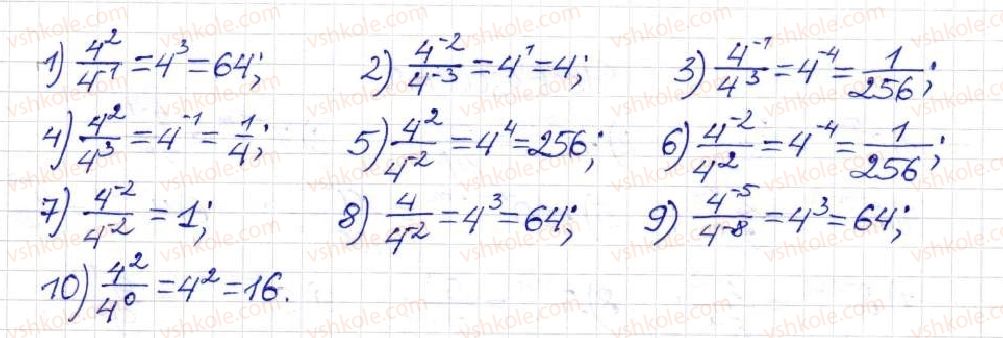 1) 4²/4⁻¹ = 4³ = 64; 2) 4⁻²/4⁻³ = 4¹ = 4; 3) 4⁻¹/4³ = 4⁻⁴ = 1/256;
4) 4²/4³ = 4⁻¹ = 1/4; 5) 4²/4⁻² = 4⁴ = 256; 6) 4⁻²/4² = 4⁻⁴ = 1/256;
7) 4⁻²/4⁻² = 1; 8) 4/4⁻² = 4³ = 64; 9) 4⁻⁵/4⁻⁸ = 4³ = 64;
10) 4²/4⁰ = 4² = 16.
vshkole.com